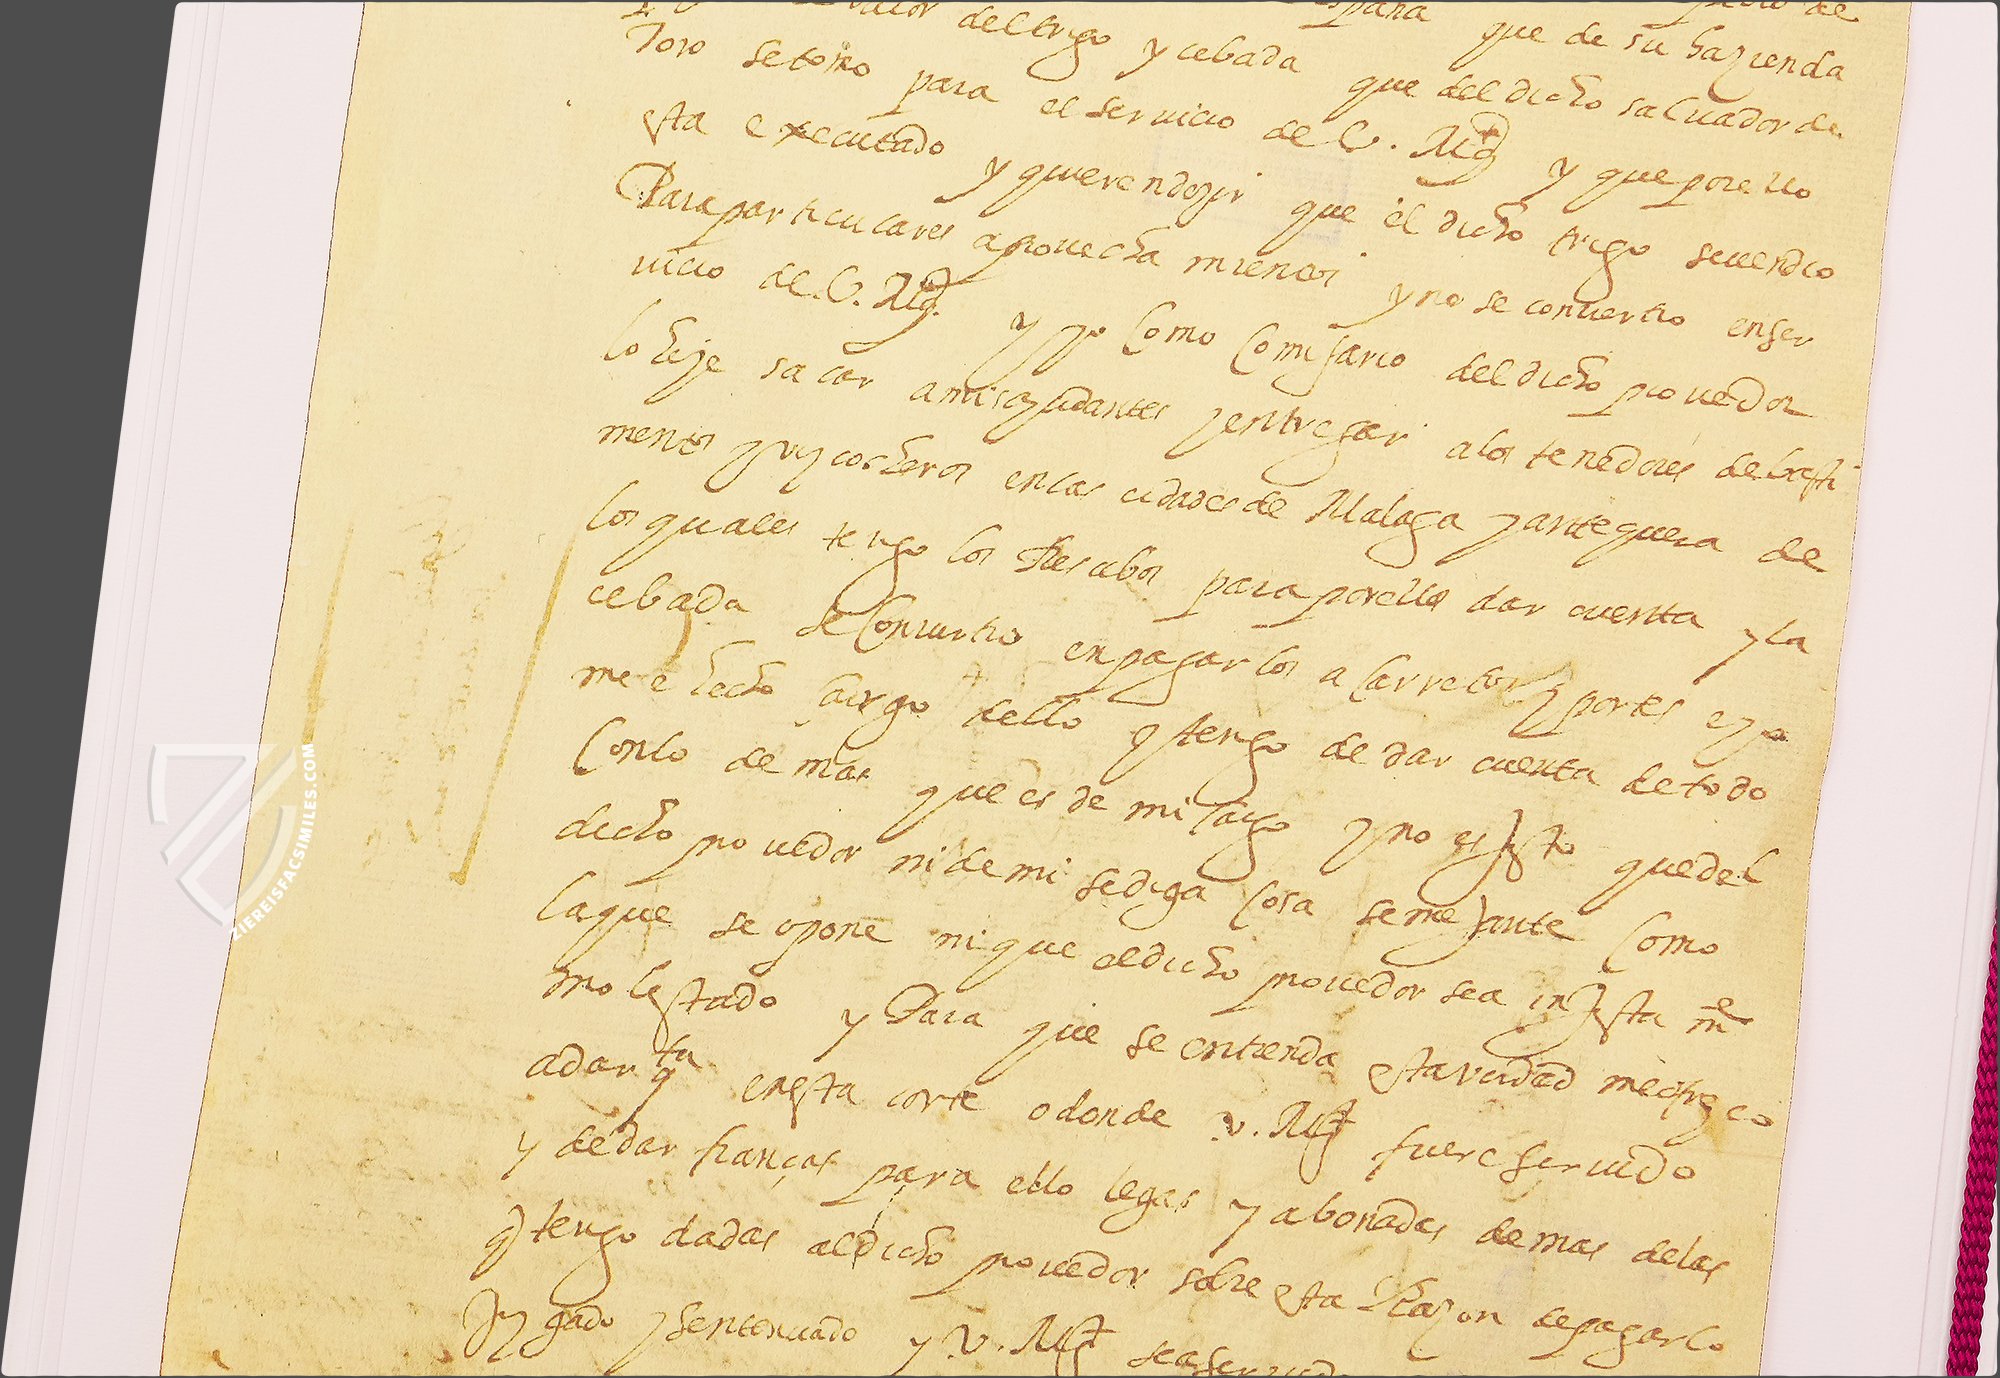 valor del trigo y cebada que de su hazienda
Toro se tomo para el servicio de V. Mgd que del dicho salvador de
esta executado y quieren dezir que el dicho trigo se vendio y que por ello
Para particulares aprovecha mientos y no se convertio en ser
vicio de V. Mgd. y yo como Comisario del dicho proveedor
lo hize sacar a mis ayudantes y entregar a los tenedores de basti
mentos y vizcocheros en las cidades de Malaga y antequera de
los quales tengo los Recabos para por ellos dar cuenta y la
cebada se convirtio en pagar los acarretos y portes e yo
me e hecho cargo dello q tengo de dar cuenta de todo
Con lo demas que es de mi cargo y no es justo que del
dicho proveedor ni de mi se diga cosa semejante Como
la que se opone ni que el dicho proveedor sea injusta me
molestado y Para que se entienda esta verdad me ofrezco
a dar qta en esta corte o donde v. Mgt fuere servido
y de dar fianças para ello legas y abonadas demas de las
q tengo dadas al dicho proveedor sobre esta Razon de pagar lo
Juzgado y sentenciado y V. Mgt sea servido
ZIEREISFACSIMILES.COM